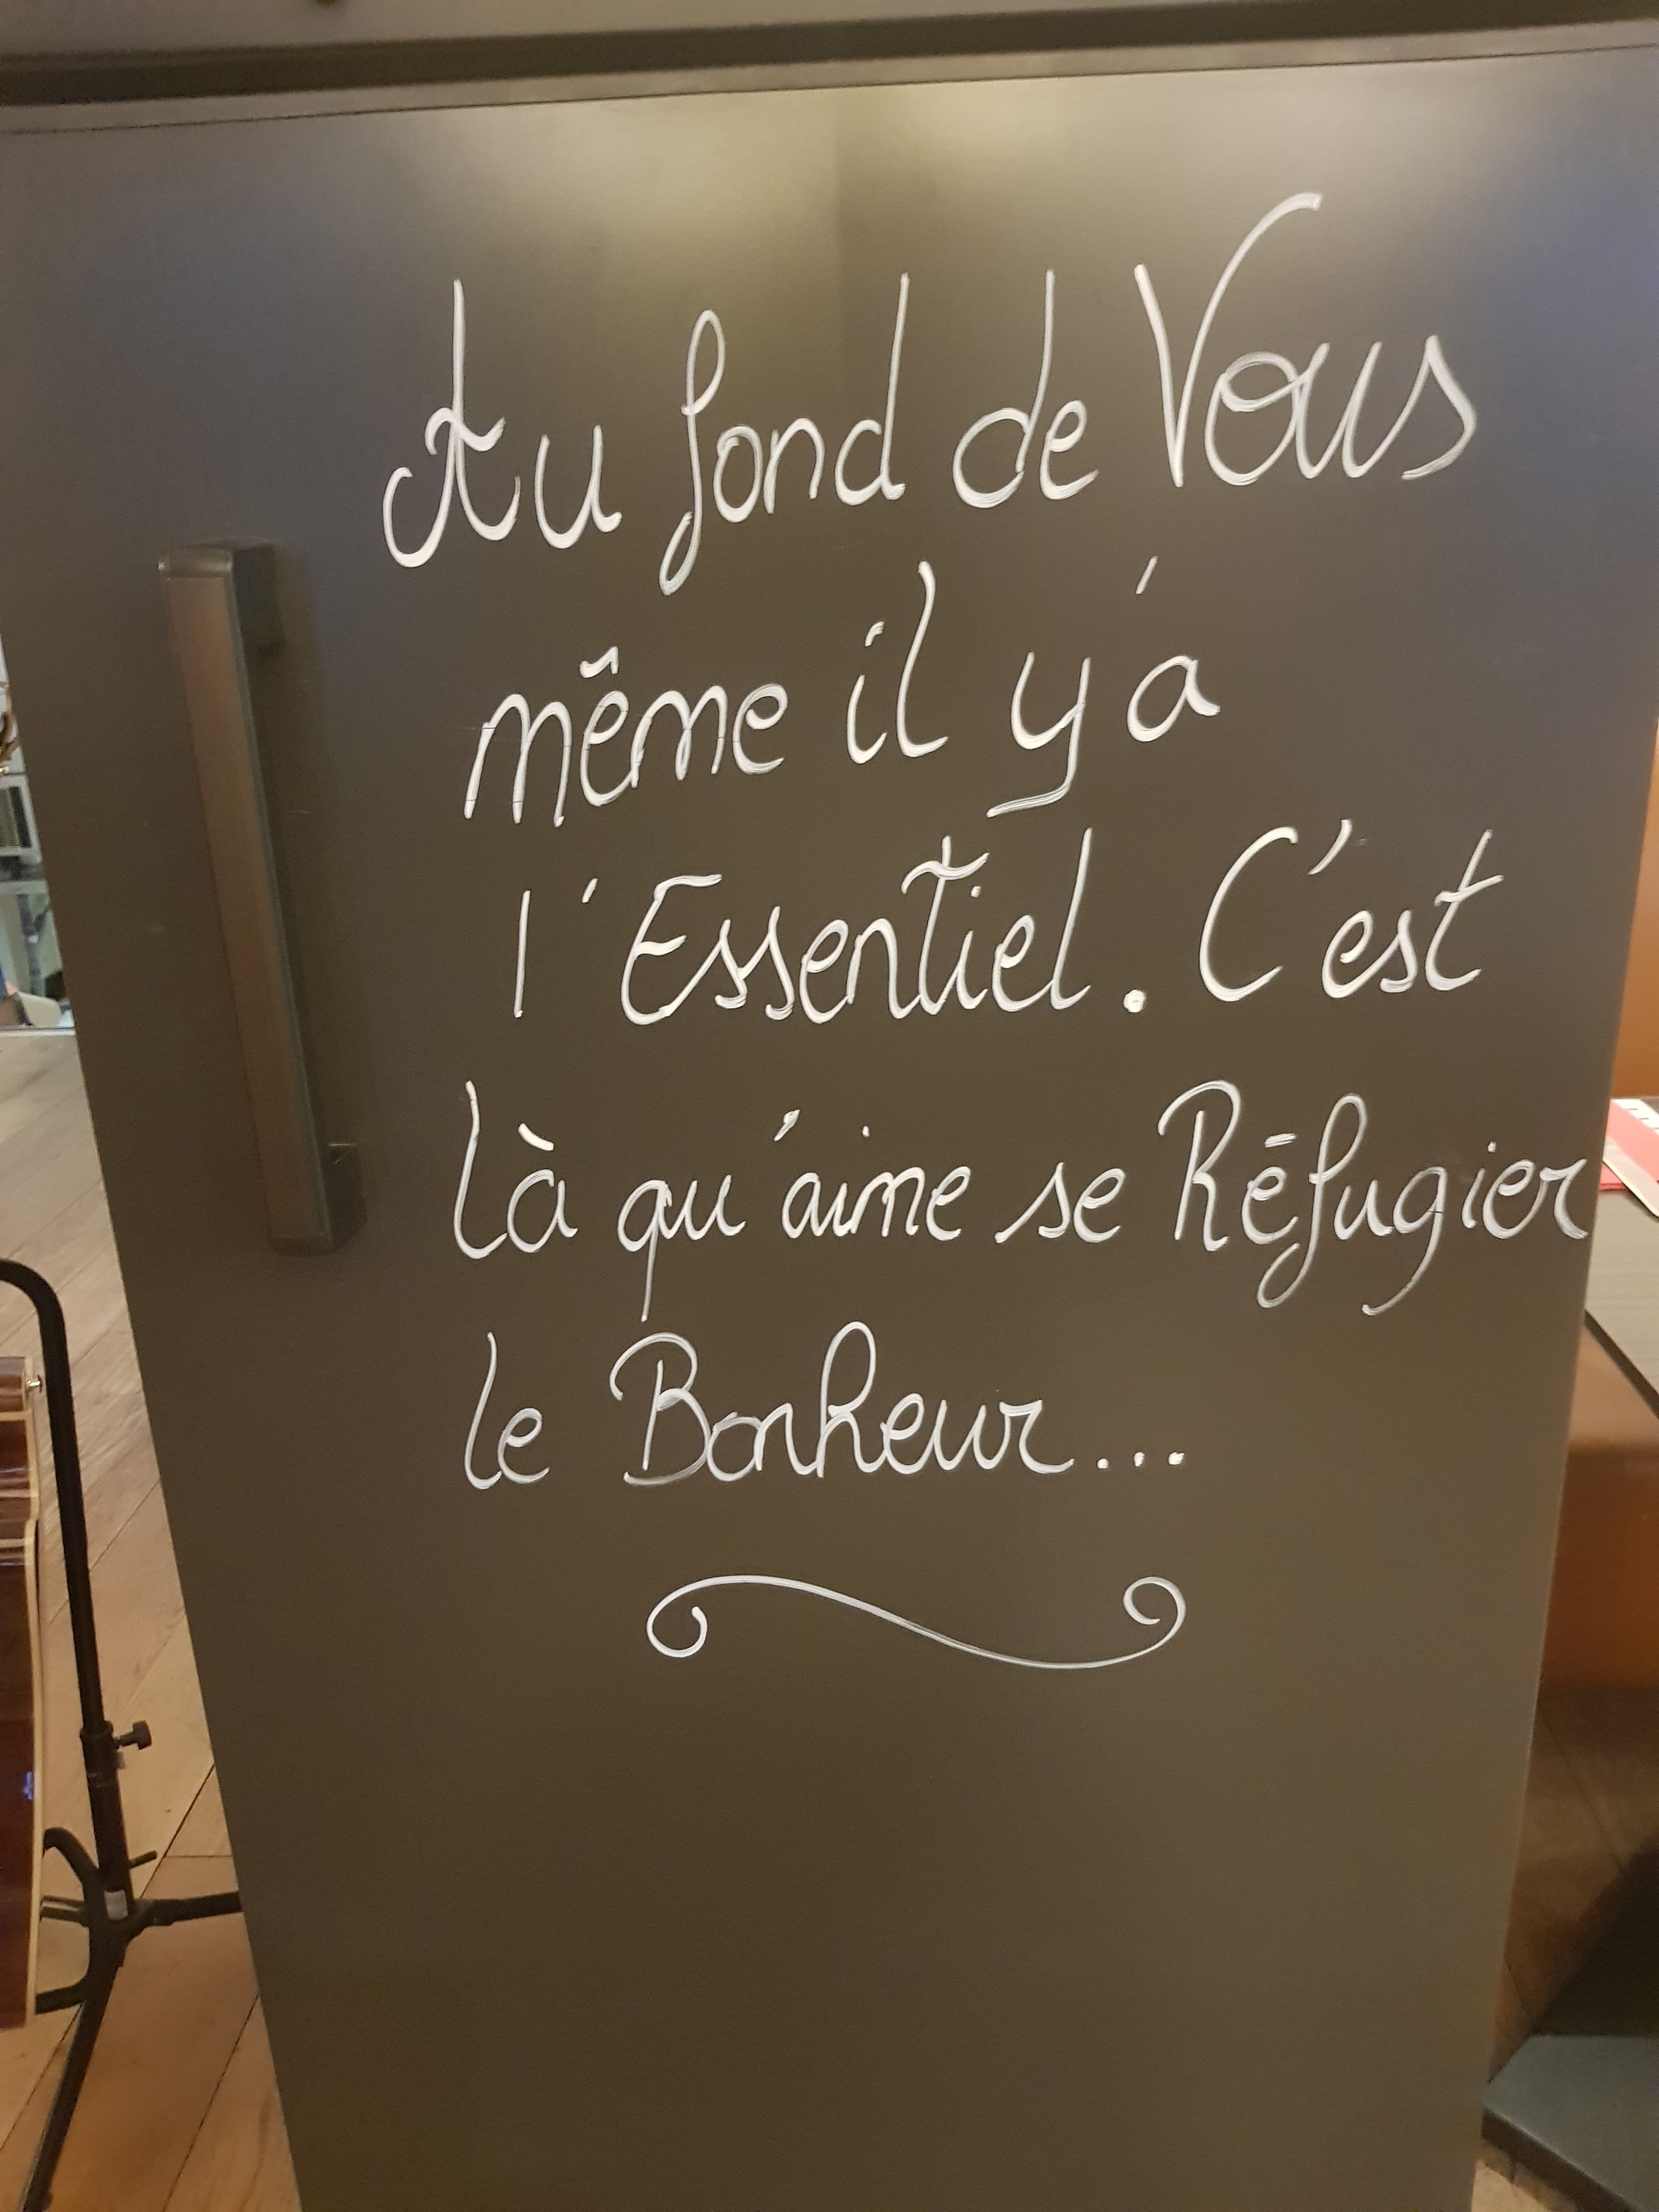 Au fond de Vous
même il y'a
l'Essentiel. C'est
là qu'aime se Réfugier
le Bonheur...